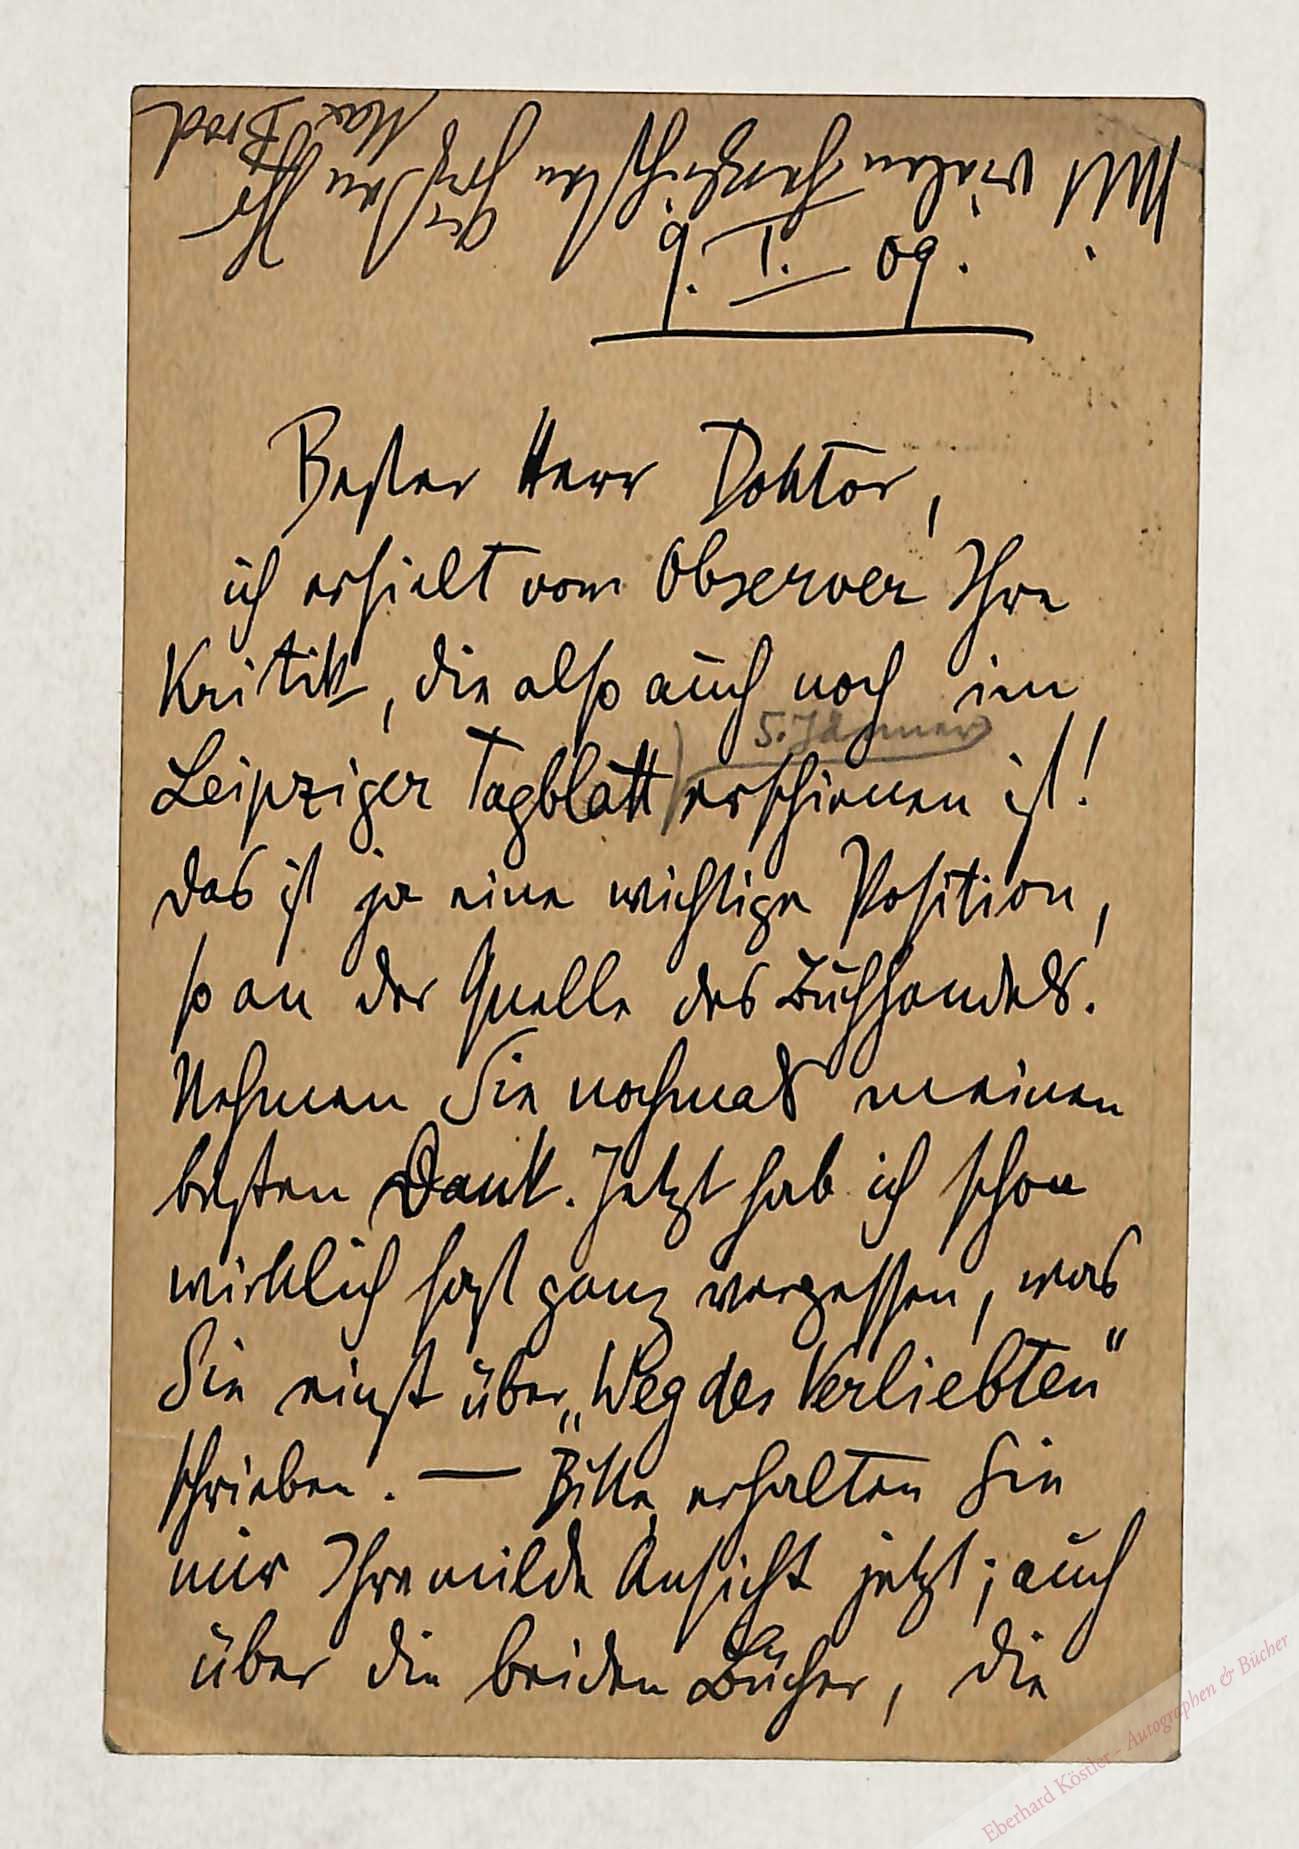 Mit vielen herzlichsten
Grüßen Ihr
Max Brod
9. I. 09.
Bester Herr Doktor,
ich erhielt vom Observer Ihre
Kritik, die also auch noch im
5. Jänner
Leipziger Tagblatt erschienen ist!
Das ist ja eine wichtige Position,
so an der Quelle des Buchhandels.
Nehmen Sie nochmals meinen
besten Dank. Jetzt hab ich schon
wirklich fast ganz vergessen, was
Sie einst über „Weg des Verliebten“
schrieben. — Bitte erhalten Sie
mir Ihre milde Ansicht jetzt; auch
über die beiden Bücher, die
Eberhard Köstler – Autographen & Bücher